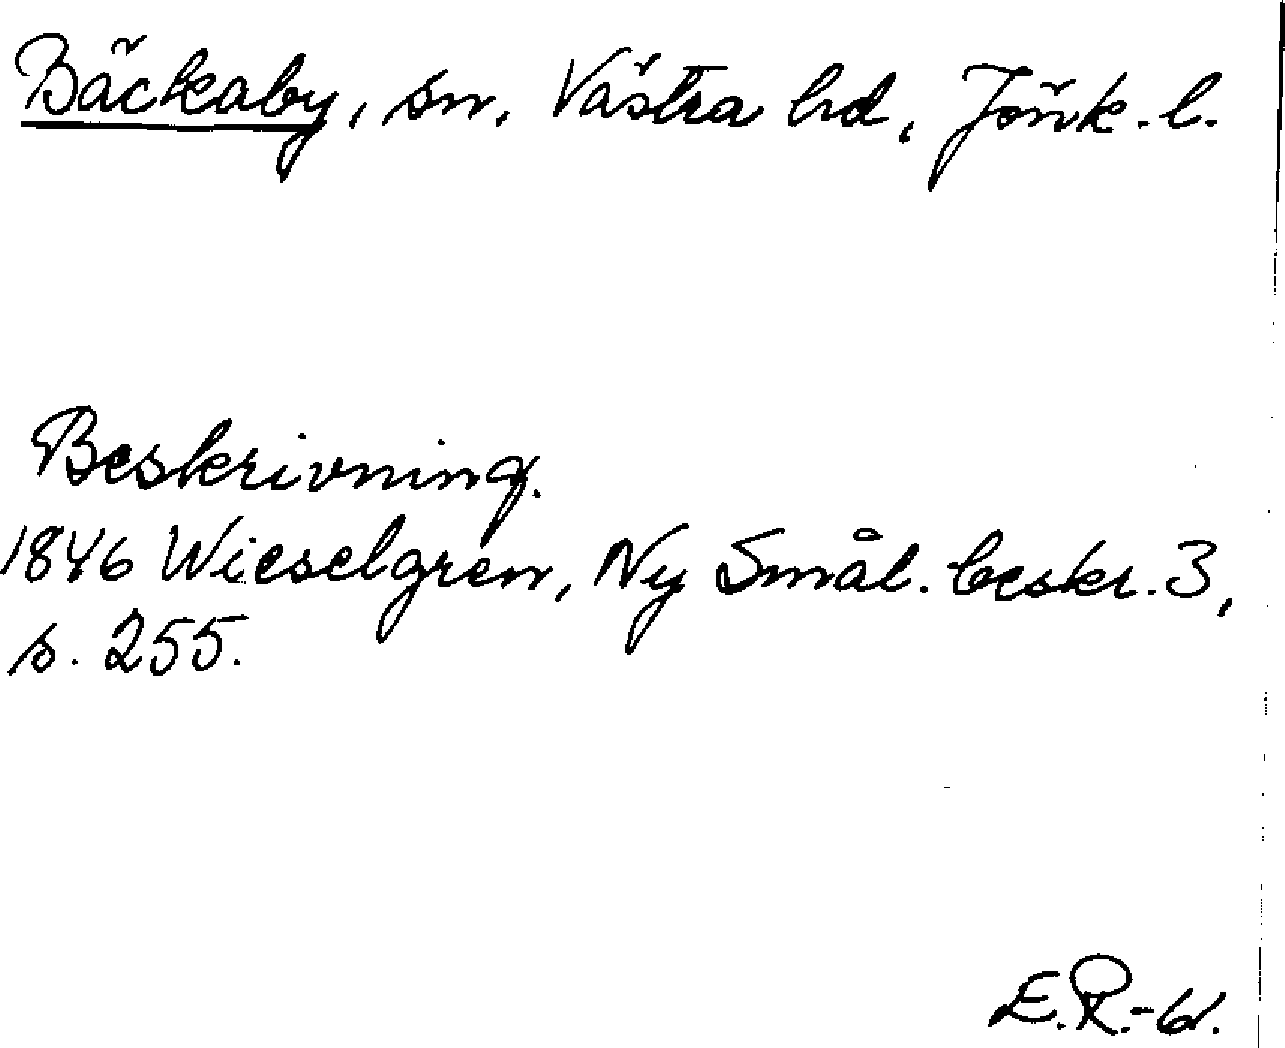 Bäckaby, sn, Västra hd, Jönk. l.
Beskrivning.
1846 Wieselgren, Ny Smål. beskr. 3,
s. 255.
E.R.-61.